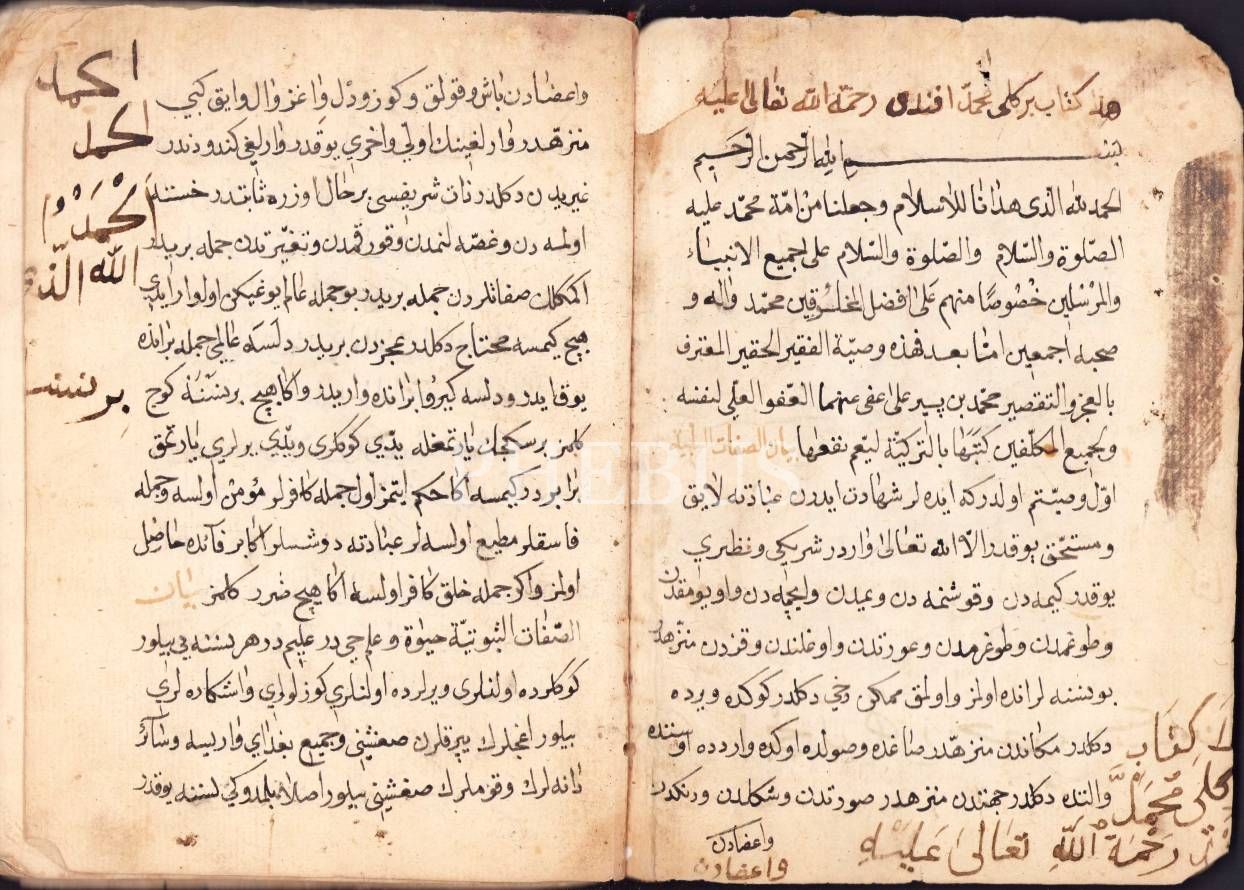 هذا كتاب بركلى محمد افندى رحمة الله تعالى عليه
بسم الله الرحمن الرحيم
الحمد لله الذى هدانا للاسلام وجعلنا من امّة محمّد عليه
الصّلوة والسّلام والصّلوة والسّلام على جميع الانبياء
والمرسلين خصوصًا منهم على افضل المخلوقين محمّد واله و
صحبه اجمعين امّا بعد فهذه وصيّة الفقير الحقير المعترف
بالعجز والتقصير محمّد بن پير على عفى عنهما العفو العلى لنفسه
ولجميع المكلّفين كتبتها بالتركيّة ليعم نفعها بيان الصفات
اوّل وصيّتم اولدركه ايده لر شهادت ايدرن عبادته لايق
ومستحق يوقدر الّا الله تعالى واردر شريكى ونظيرى
يوقدر كيمه دن وقوشنمه دن وعيدن وايچمه دن واويومقدن
وطوغمدن وطوغرمدن وعورتدن واوغلندن وقزدن منزّهدر
بونسنه لر انده اولمز واولمق ممكن دخى دكلدر كوكده ويرده
دكلدر مكاندن منزّهدر صاغده وصولده اوكده وارده اوستنده
والتنده دكلدر جهتدن منزهدر صورتدن وشكلدن ورنكدن
واعضادن
واعضادن
كتاب
كلى محمد
رحمة الله تعالى عليه
الحمد
الحمد
الحمد
الله الذى
بر نسنه
واعضادن باش وقولق وكوز ودل واغز وال وايق كبى
منزّهدر وارلغينك اولى واخرى يوقدر وارلغى كندودندر
غيريدن دكلدر ذات شريفسى بر حال اوزره ثابتدر خسته
اولمه دن وغصّه لنمدن وقورقمدن وتغيّرتدن جمله بريدر
صفاتلردن جمله بريدر بو جمله عالم يوغيكن اول وار ايدى
هيچ كيمسه محتاج دكلدر عجزدن بريدر دلسه عالمى جمله بر انده
يوق ايدر ودلسه كيرو بر انده وار ايدر واكا هيچ بر نسنه كوج
كلمز بر سكجك ياراتمغله يدى كوكلرى ويدى يرلرى ياراتمق
برابردر كيمسه اكا حكم ايتمز اول جمله كافرلر مؤمن اولسه وجمله
فاسقلر مطيع اولسه لر عبادته دوشسلر اكا بر فائده حاصل
اولمز واكر جمله خلق كافر اولسه اكا هيچ ضرر كلمز بيان
الصّفات الثبوتيّة حيوة وعلم حىدر عليمدر هر نسنه يى بيلور
كوكلرده اولنلرى ويرلرده اولنلرى كوزلولرى واشكاره لرى
بيلور اغجلرك يپرقلرن صغيشنى وجميع بغداى واريسه وسائر
دانه لرك وقوملرك صغيشنى بيلور اصلا بلمدوكى نسنه يوقدر
PHEBUS